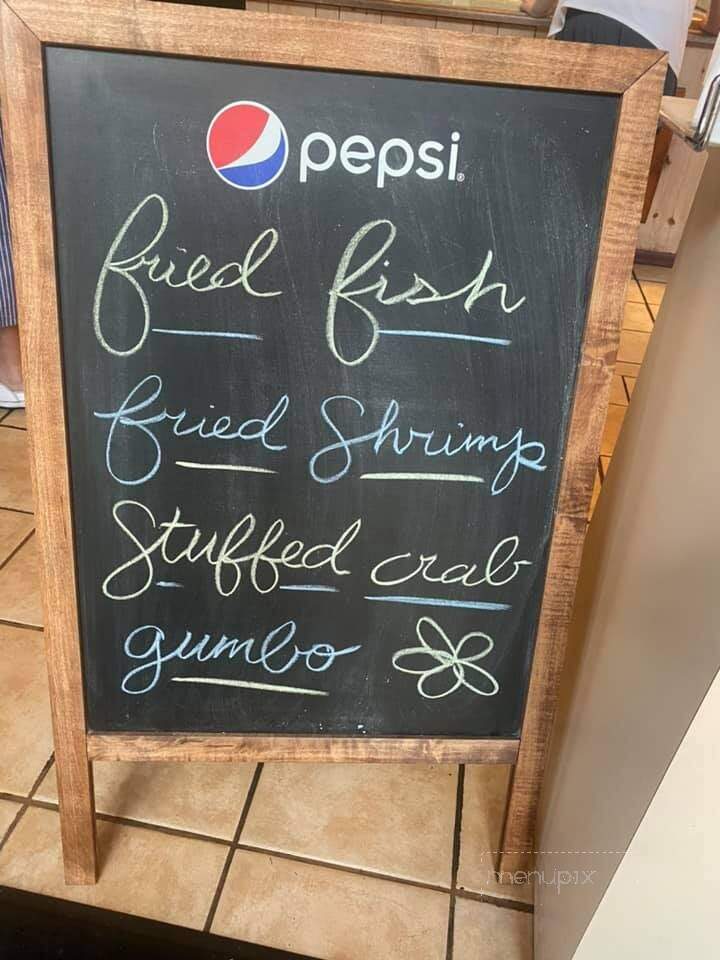 pepsi
fried fish
fried Shrimp
Stuffed crab
gumbo
menupix